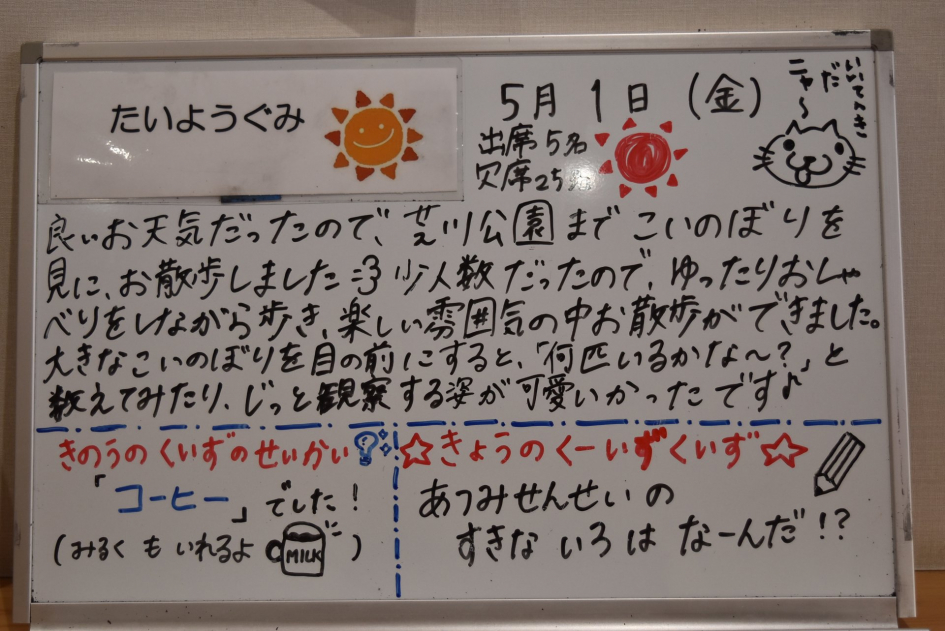 たいようぐみ
5月1日（金）
いいてんき
だ
ニャ〜
出席5名
欠席25名
良いお天気だったので、芹川公園までこいのぼりを
見に、お散歩しました=3 少人数だったので、ゆったりおしゃ
べりをしながら歩き、楽しい雰囲気の中お散歩ができました。
大きなこいのぼりを目の前にすると、「何匹いるかな〜?」と
数えてみたり、じっと観察する姿が可愛いかったです♪
きのうのくいずのせいかい
「コーヒー」でした!
(みるくもいれるよ MILK )
☆きょうのくーいずくいず☆
あつみせんせいの
すきないろはなーんだ!?